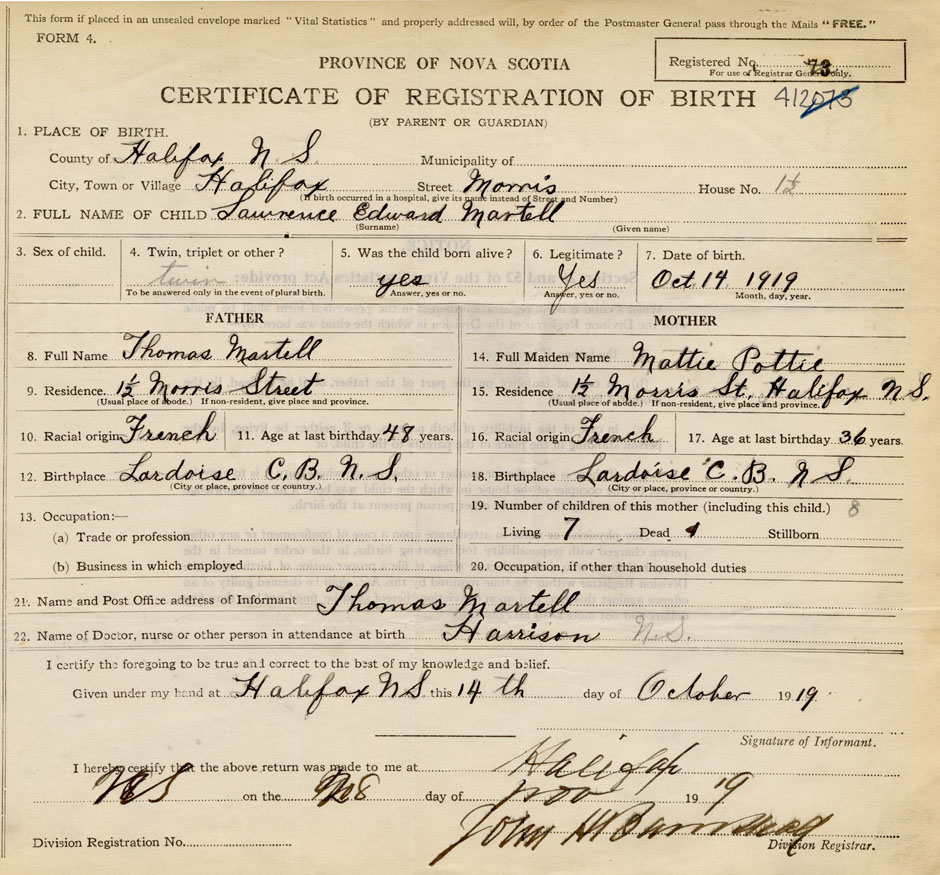 This form if placed in an unsealed envelope marked "Vital Statistics" and properly addressed will, by order of the Postmaster General pass through the Mails "FREE."
FORM 4.
Registered No. 73
For use of Registrar General only.
PROVINCE OF NOVA SCOTIA
CERTIFICATE OF REGISTRATION OF BIRTH 412073
(BY PARENT OR GUARDIAN)
1. PLACE OF BIRTH.
County of Halifax N S Municipality of
City, Town or Village Halifax Street Morris House No. 1½
(If birth occurred in a hospital, give its name instead of Street and Number)
2. FULL NAME OF CHILD Lawrence Edward Martell
(Surname) (Given name)
3. Sex of child. 4. Twin, triplet or other? 5. Was the child born alive? 6. Legitimate? 7. Date of birth.
twin yes Yes Oct 14 1919
To be answered only in the event of plural birth. Answer, yes or no. Answer, yes or no. Month, day, year.
FATHER MOTHER
8. Full Name Thomas Martell 14. Full Maiden Name Mattie Pottie
9. Residence. 1½ Morris Street 15. Residence 1½ Morris St. Halifax N S.
(Usual place of abode.) If non-resident, give place and province. (Usual place of abode.) If non-resident, give place and province.
10. Racial origin French 11. Age at last birthday 48 years. 16. Racial origin French 17. Age at last birthday 36 years.
12. Birthplace Lardoise C. B. N. S. 18. Birthplace Lardoise C. B. N S.
(City or place, province or country.) (City or place, province or country.)
13. Occupation:— 19. Number of children of this mother (including this child.) 8
(a) Trade or profession Living 7 Dead Stillborn
(b) Business in which employed 20. Occupation, if other than household duties
21. Name and Post Office address of Informant Thomas Martell
22. Name of Doctor, nurse or other person in attendance at birth Harrison N.S.
I certify the foregoing to be true and correct to the best of my knowledge and belief.
Given under my hand at Halifax N S this 14 th day of October 1919
Signature of Informant.
I hereby certify that the above return was made to me at Halifax
NS on the day of Nov 1919
John H
Division Registrar No. Division Registrar.